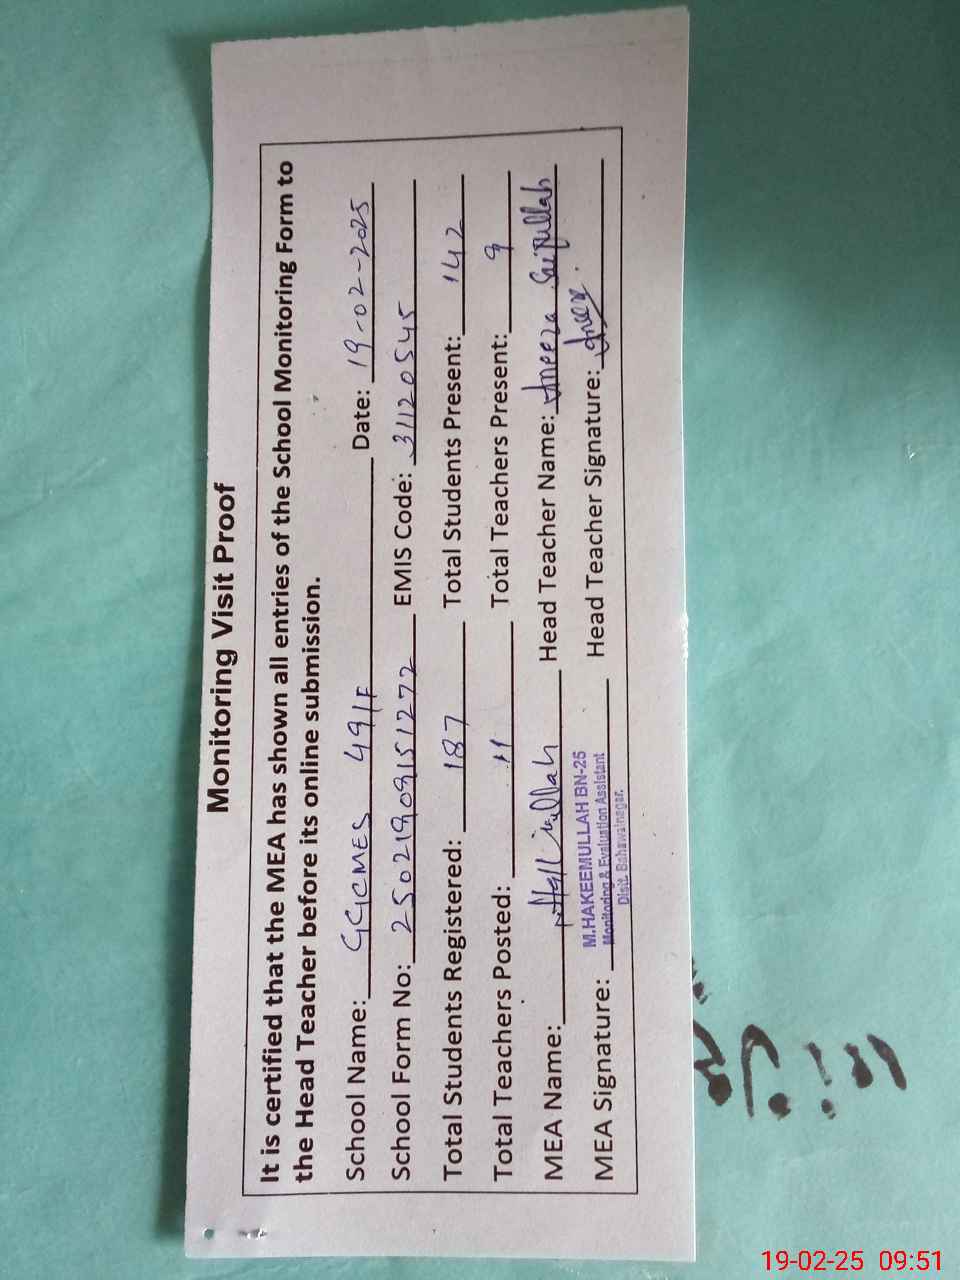 Monitoring Visit Proof
It is certified that the MEA has shown all entries of the School Monitoring Form to
the Head Teacher before its online submission.
School Name: GGCMES 49/F Date: 19-02-2025
School Form No: 25021909151272 EMIS Code: 31120545
Total Students Registered: 187 Total Students Present: 142
Total Teachers Posted: 11 Total Teachers Present: 9
MEA Name: Head Teacher Name: Aneeza Saifullah
MEA Signature: Head Teacher Signature:
M.HAKEEMULLAH BN-25
Monitoring & Evaluation Assistant
Distt. Bahawalnagar.
19-02-25 09:51